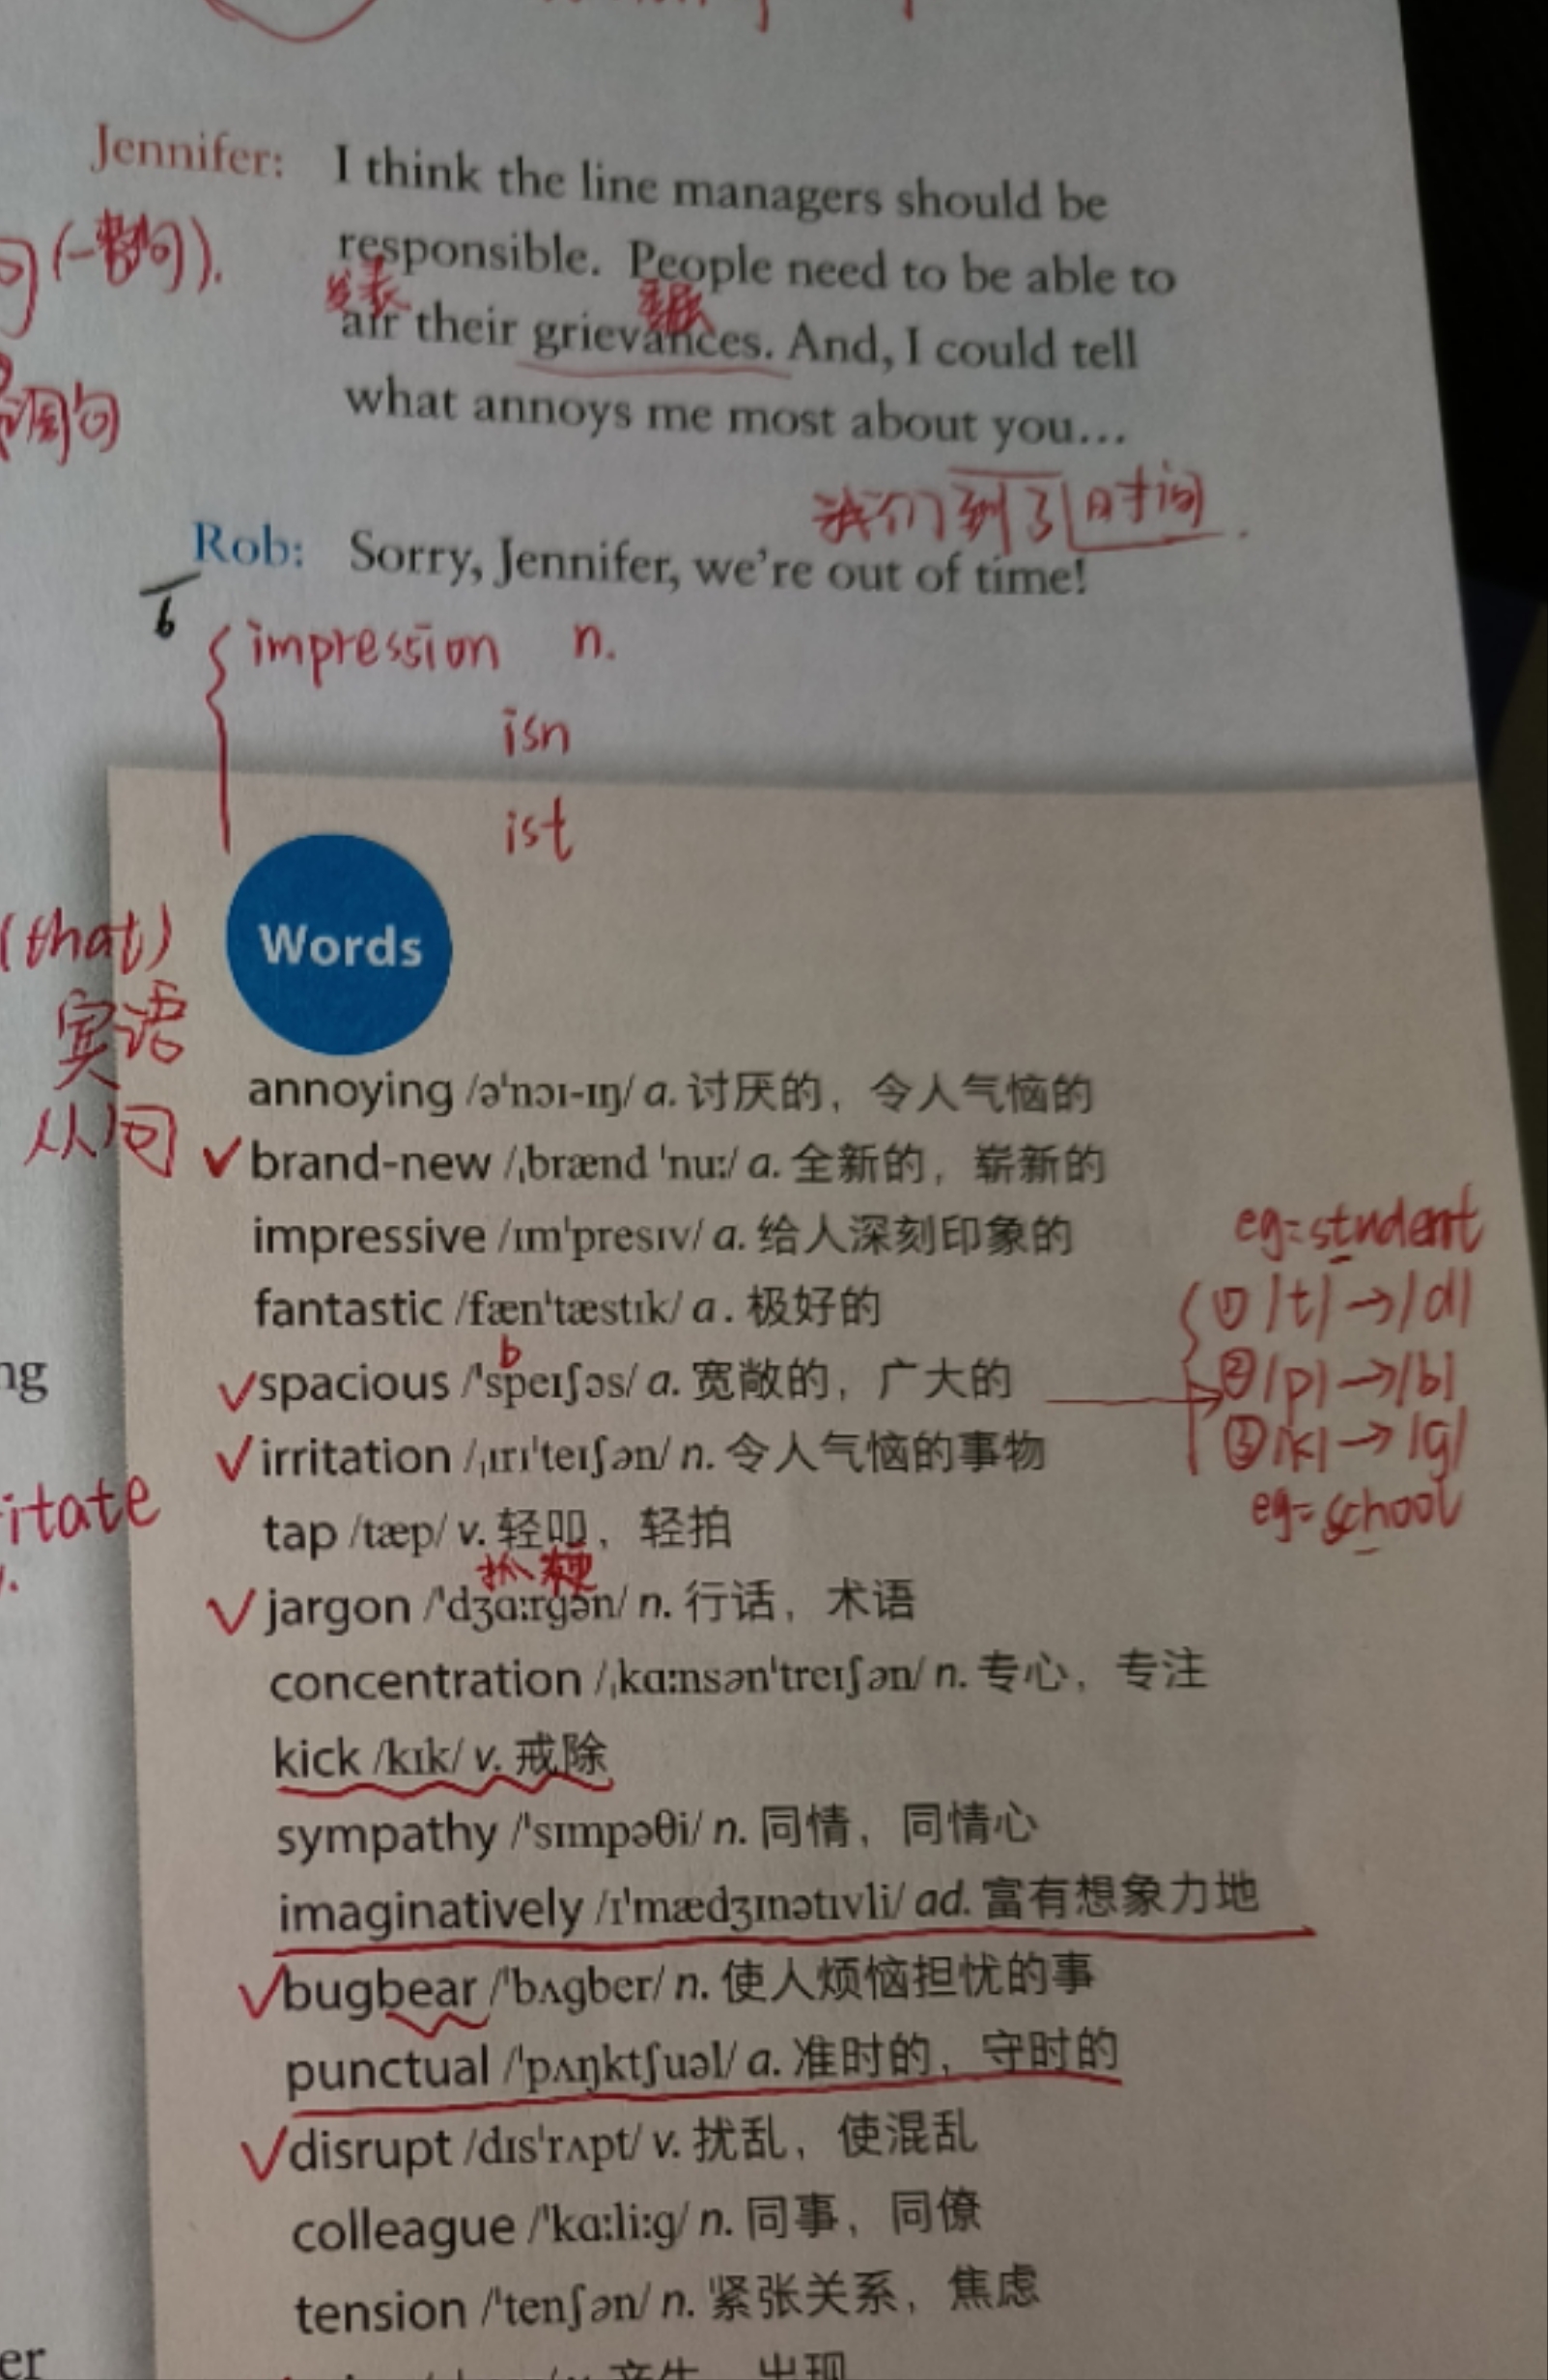 Jennifer: I think the line managers should be
responsible. People need to be able to
发表
air their grievances. And, I could tell
what annoys me most about you...
调句
我们到了时间.
Rob: Sorry, Jennifer, we're out of time!
6
impression n.
isn
ist
Words
(that)
宾语
从句
annoying /əˈnɔɪ-ɪŋ/ a. 讨厌的，令人气恼的
✓brand-new /ˌbrænd ˈnuː/ a. 全新的，崭新的
impressive /ɪmˈpresɪv/ a. 给人深刻印象的
eg=student
fantastic /fænˈtæstɪk/ a. 极好的
① /t/→/d/
b
✓spacious /ˈspeɪʃəs/ a. 宽敞的，广大的
② /p/→/b/
✓irritation /ˌɪrɪˈteɪʃən/ n. 令人气恼的事物
③ /k/→/g/
eg=school
itate
tap /tæp/ v. 轻叩，轻拍
✓jargon /ˈdʒɑːrgən/ n. 行话，术语
concentration /ˌkɑːnsənˈtreɪʃən/ n. 专心，专注
kick /kɪk/ v. 戒除
sympathy /ˈsɪmpəθi/ n. 同情，同情心
imaginatively /ɪˈmædʒɪnətɪvli/ ad. 富有想象力地
✓bugbear /ˈbʌgber/ n. 使人烦恼担忧的事
punctual /ˈpʌŋktʃuəl/ a. 准时的，守时的
✓disrupt /dɪsˈrʌpt/ v. 扰乱，使混乱
colleague /ˈkɑːliːg/ n. 同事，同僚
tension /ˈtenʃən/ n. 紧张关系，焦虑
ng
er